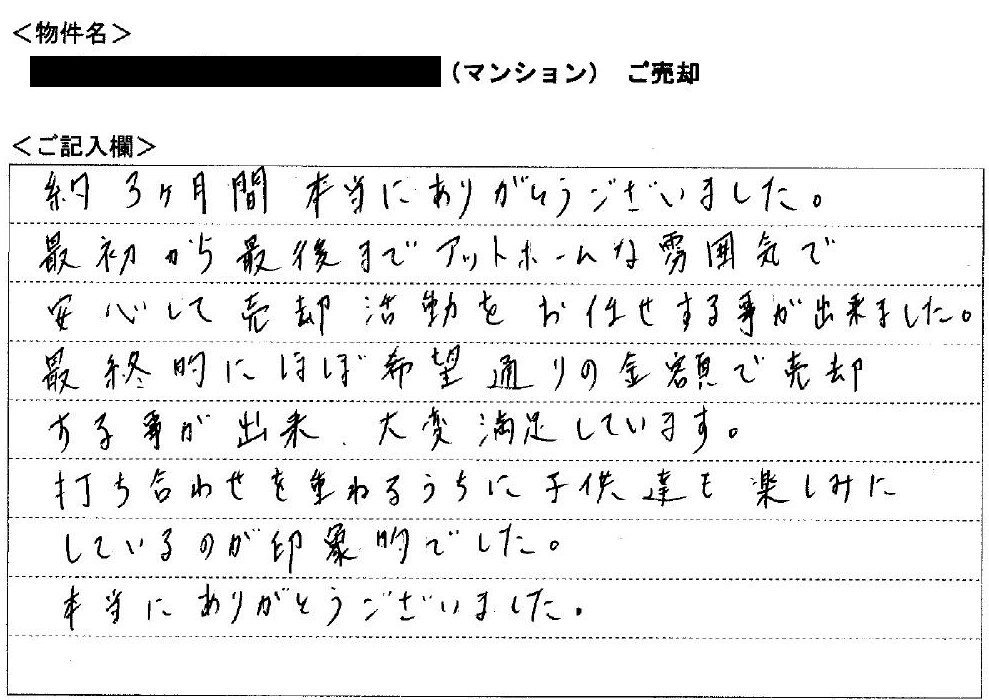 ＜物件名＞
（マンション） ご売却
＜ご記入欄＞
約3ヶ月間 本当にありがとうございました。
最初から最後までアットホームな雰囲気で
安心して売却活動をお任せする事が出来ました。
最終的にほぼ希望通りの金額で売却
する事が出来、大変満足しています。
打ち合わせを重ねるうちに子供達も楽しみに
しているのが印象的でした。
本当にありがとうございました。